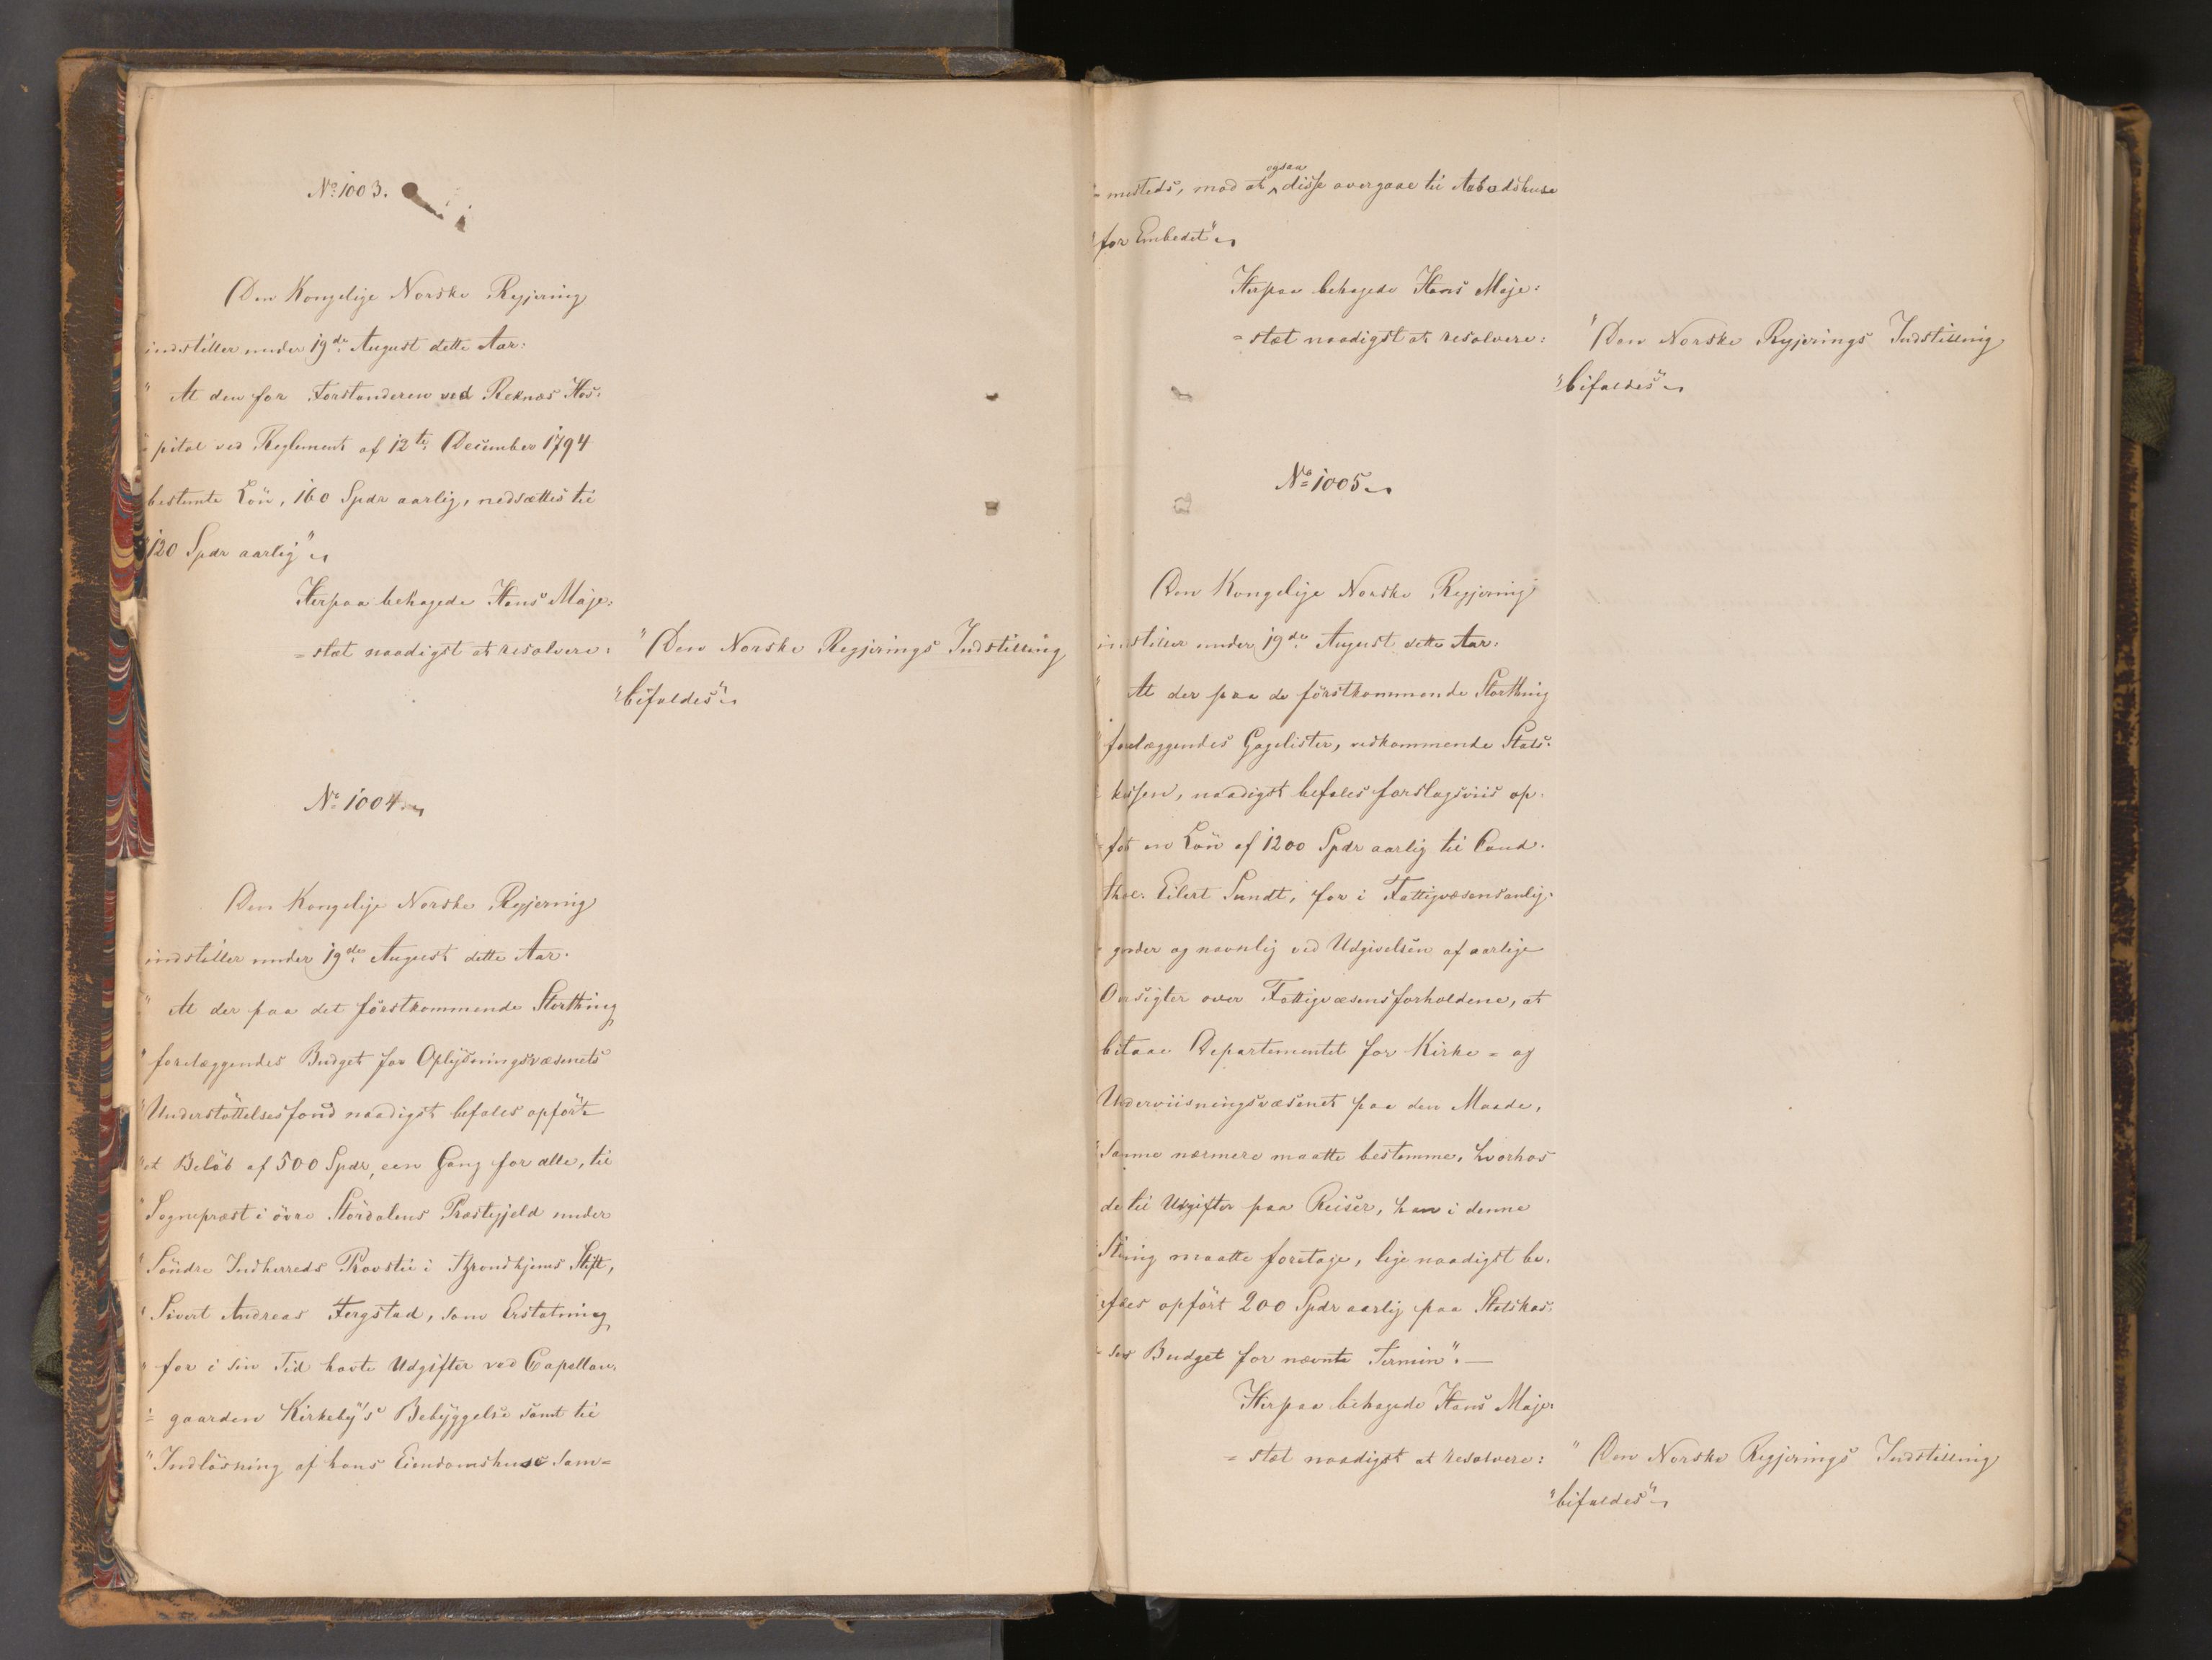 No 1003.
Den Kongelige Norske Regjering
indstiller under 19de August dette Aar:
"At den for Forstanderen ved Reknæs Hos=
"pital ved Reglement af 12te December 1794
bestemte Lön, 160 Spdr aarlig, nedsættes til
"120 Spdr aarlig"
Herpaa behagede Hans Maje=
=stæt naadigst at resolvere: "Den Norske Regjerings Indstilling
"bifaldes"
No 1004.
Den Kongelige Norske Regjering
indstiller under 19de August dette Aar.
"At der paa det förstkommende Storthing
"forelæggendes Budget for Oplysningsvæsenets
"Understöttelsesfond naadigst befales opförte
"et Belöb af 500 Spdr, een Gang for alle, til
"Sognepræst i övre Stördalens Præstegjeld under
"Söndre Indherreds Provstie i Throndhjems Stift,
"Sivert Andreas Fergstad, som Erstatning
"for i sin Tid havte Udgifter ved Capellan=
"=gaarden Kirkeby's Bebyggelse samt til
"Indlösning af hans Eiendomshuse sam=
=mesteds, mod at ogsaa disse overgaae til Aabodshuse
for Embedet"
Herpaa behagede Hans Maje=
=stæt naadigst at resolvere: "Den Norske Regjerings Indstilling
"bifaldes"
No 1005
Den Kongelige Norske Regjering
indstiller under 19de August dette Aar.
"At der paa de förstkommende Storthing
forelæggendes Gagelister, vedkommende Stats=
kassen, naadigst befales forslagsviis op=
fört en Lön af 1200 Spdr aarlig til Cand.
theol. Eilert Sundt, for i Fattigvæsensanlig=
gender og navnlig ved Udgivelsen af aarlige
Oversigter over Fattigvæsensforholdene, at
bistaae Departementet for Kirke= og
Underviisningsvæsenet paa den Maade,
Samme nærmere maatte bestemme, hvorhos
der til Udgifter paa Reiser, han i denne
Stilling maatte foretage, lige naadigst be=
fales opfört 200 Spdr aarlig paa Statskas=
sens Budget for nævnte Termin". —
Herpaa behagede Hans Maje=
=stæt naadigst at resolvere: "Den Norske Regjerings Indstilling
"bifaldes"